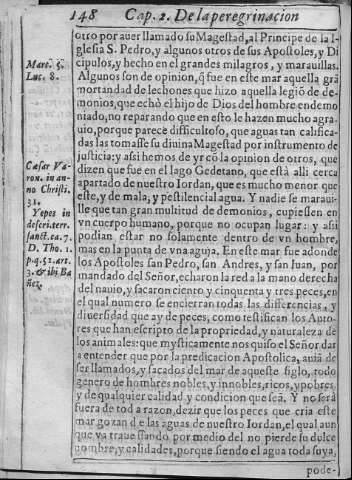 148 Cap. 2. De la peregrinacion
otro por auer llamado su Magestad, al Principe de la I-
glesia S. Pedro, y algunos otros de sus Apostoles, y Di
cipulos, y hecho en el grandes milagros, y marauillas.
Marc. 5.
Luc. 8.
Algunos son de opinion, q̃ fue en este mar aquella grã
mortandad de lechones que hizo aquella legiõ de de-
monios, que echò el hijo de Dios del hombre endemo
niado, no reparando que en esto le hazen mucho agra-
uio, porque parece dificultoso, que aguas tan califica-
das las tomasse su diuina Magestad por instrumento de
justicia: y assi hemos de yr cõ la opinion de otros, que
Cæsar Va-
ron. in an-
no Christi.
31.
dizen que fue en el lago Gedetano, que està alli cerca
apartado de nuestro Iordan, que es mucho menor que
este, y de mala, y pestilencial agua. Y nadie se maraui-
lle que tan gran multitud de demonios, cupiessen en
Yepes in
descri. terr.
sanct. ca. 7.
D. Tho. 1.
p. q. 52. art.
3. & ibi Ba
ñez.
vn cuerpo humano, porque no ocupan lugar: y assi
podian estar no solamente dentro de vn hombre,
mas en la punta de vna aguja. En este mar fue adonde
los Apostoles san Pedro, san Andres, y san Iuan, por
mandado del Señor, echaron la red a la mano derecha
del nauio, y sacaron ciento y cinquenta y tres peces, en
el qual numero se encierran todas las differencias, y
diuersidad que ay de peces, como testifican los Auto-
res que han escripto de la propriedad, y naturaleza de
los animales: que mysticamente nos quiso el Señor dar
a entender que por la predicacion Apostolica, auiã de
ser llamados, y sacados del mar de aqueste siglo, todo
genero de hombres nobles, y innobles, ricos, y pobres
y de qualquier calidad y condicion que seã. Y no serà
fuera de toda razon, dezir que los peces que cria este
mar gozan de las aguas de nuestro Iordan, el qual aun
que va trauessando por medio del no pierde su dulce
nombre, y calidades, porque siendo el agua toda suya,
pode-